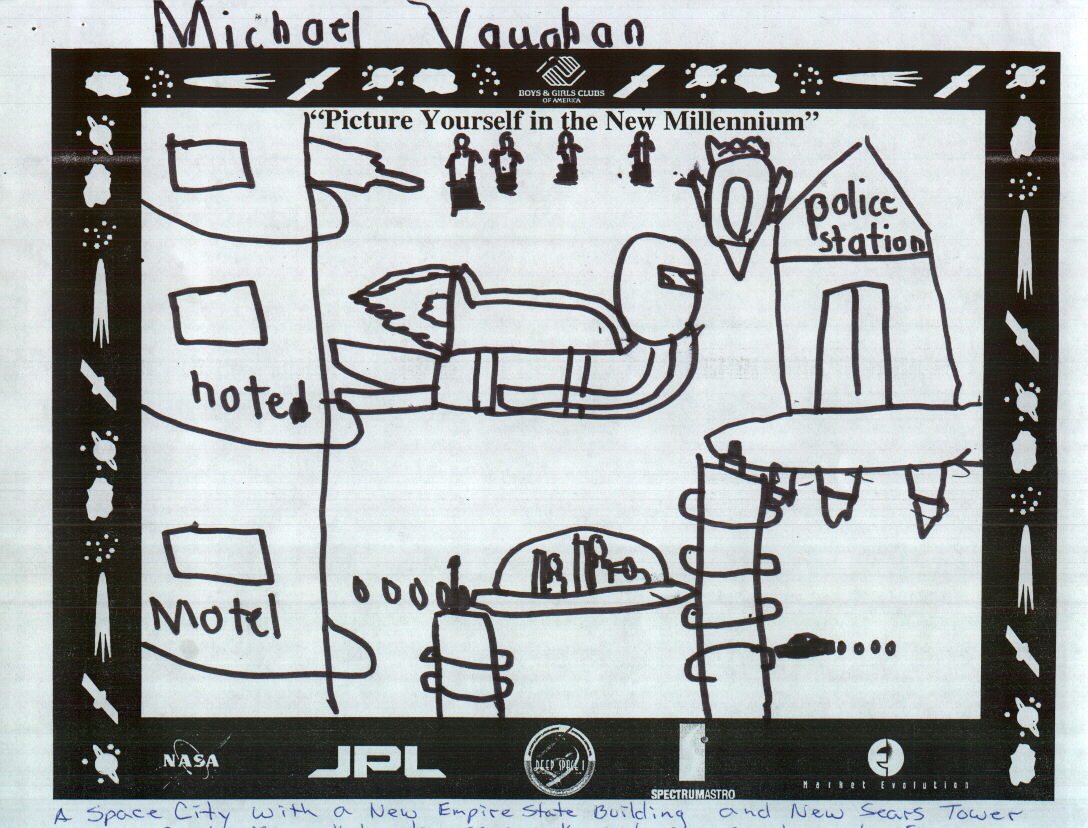 Michael Vaughan
BOYS & GIRLS CLUBS
OF AMERICA
“Picture Yourself in the New Millennium”
police
station
hotel
Motel
NASA
JPL
DEEP SPACE 1
SPECTRUMASTRO
Market Evolution
A Space City with a New Empire State Building and New Sears Tower